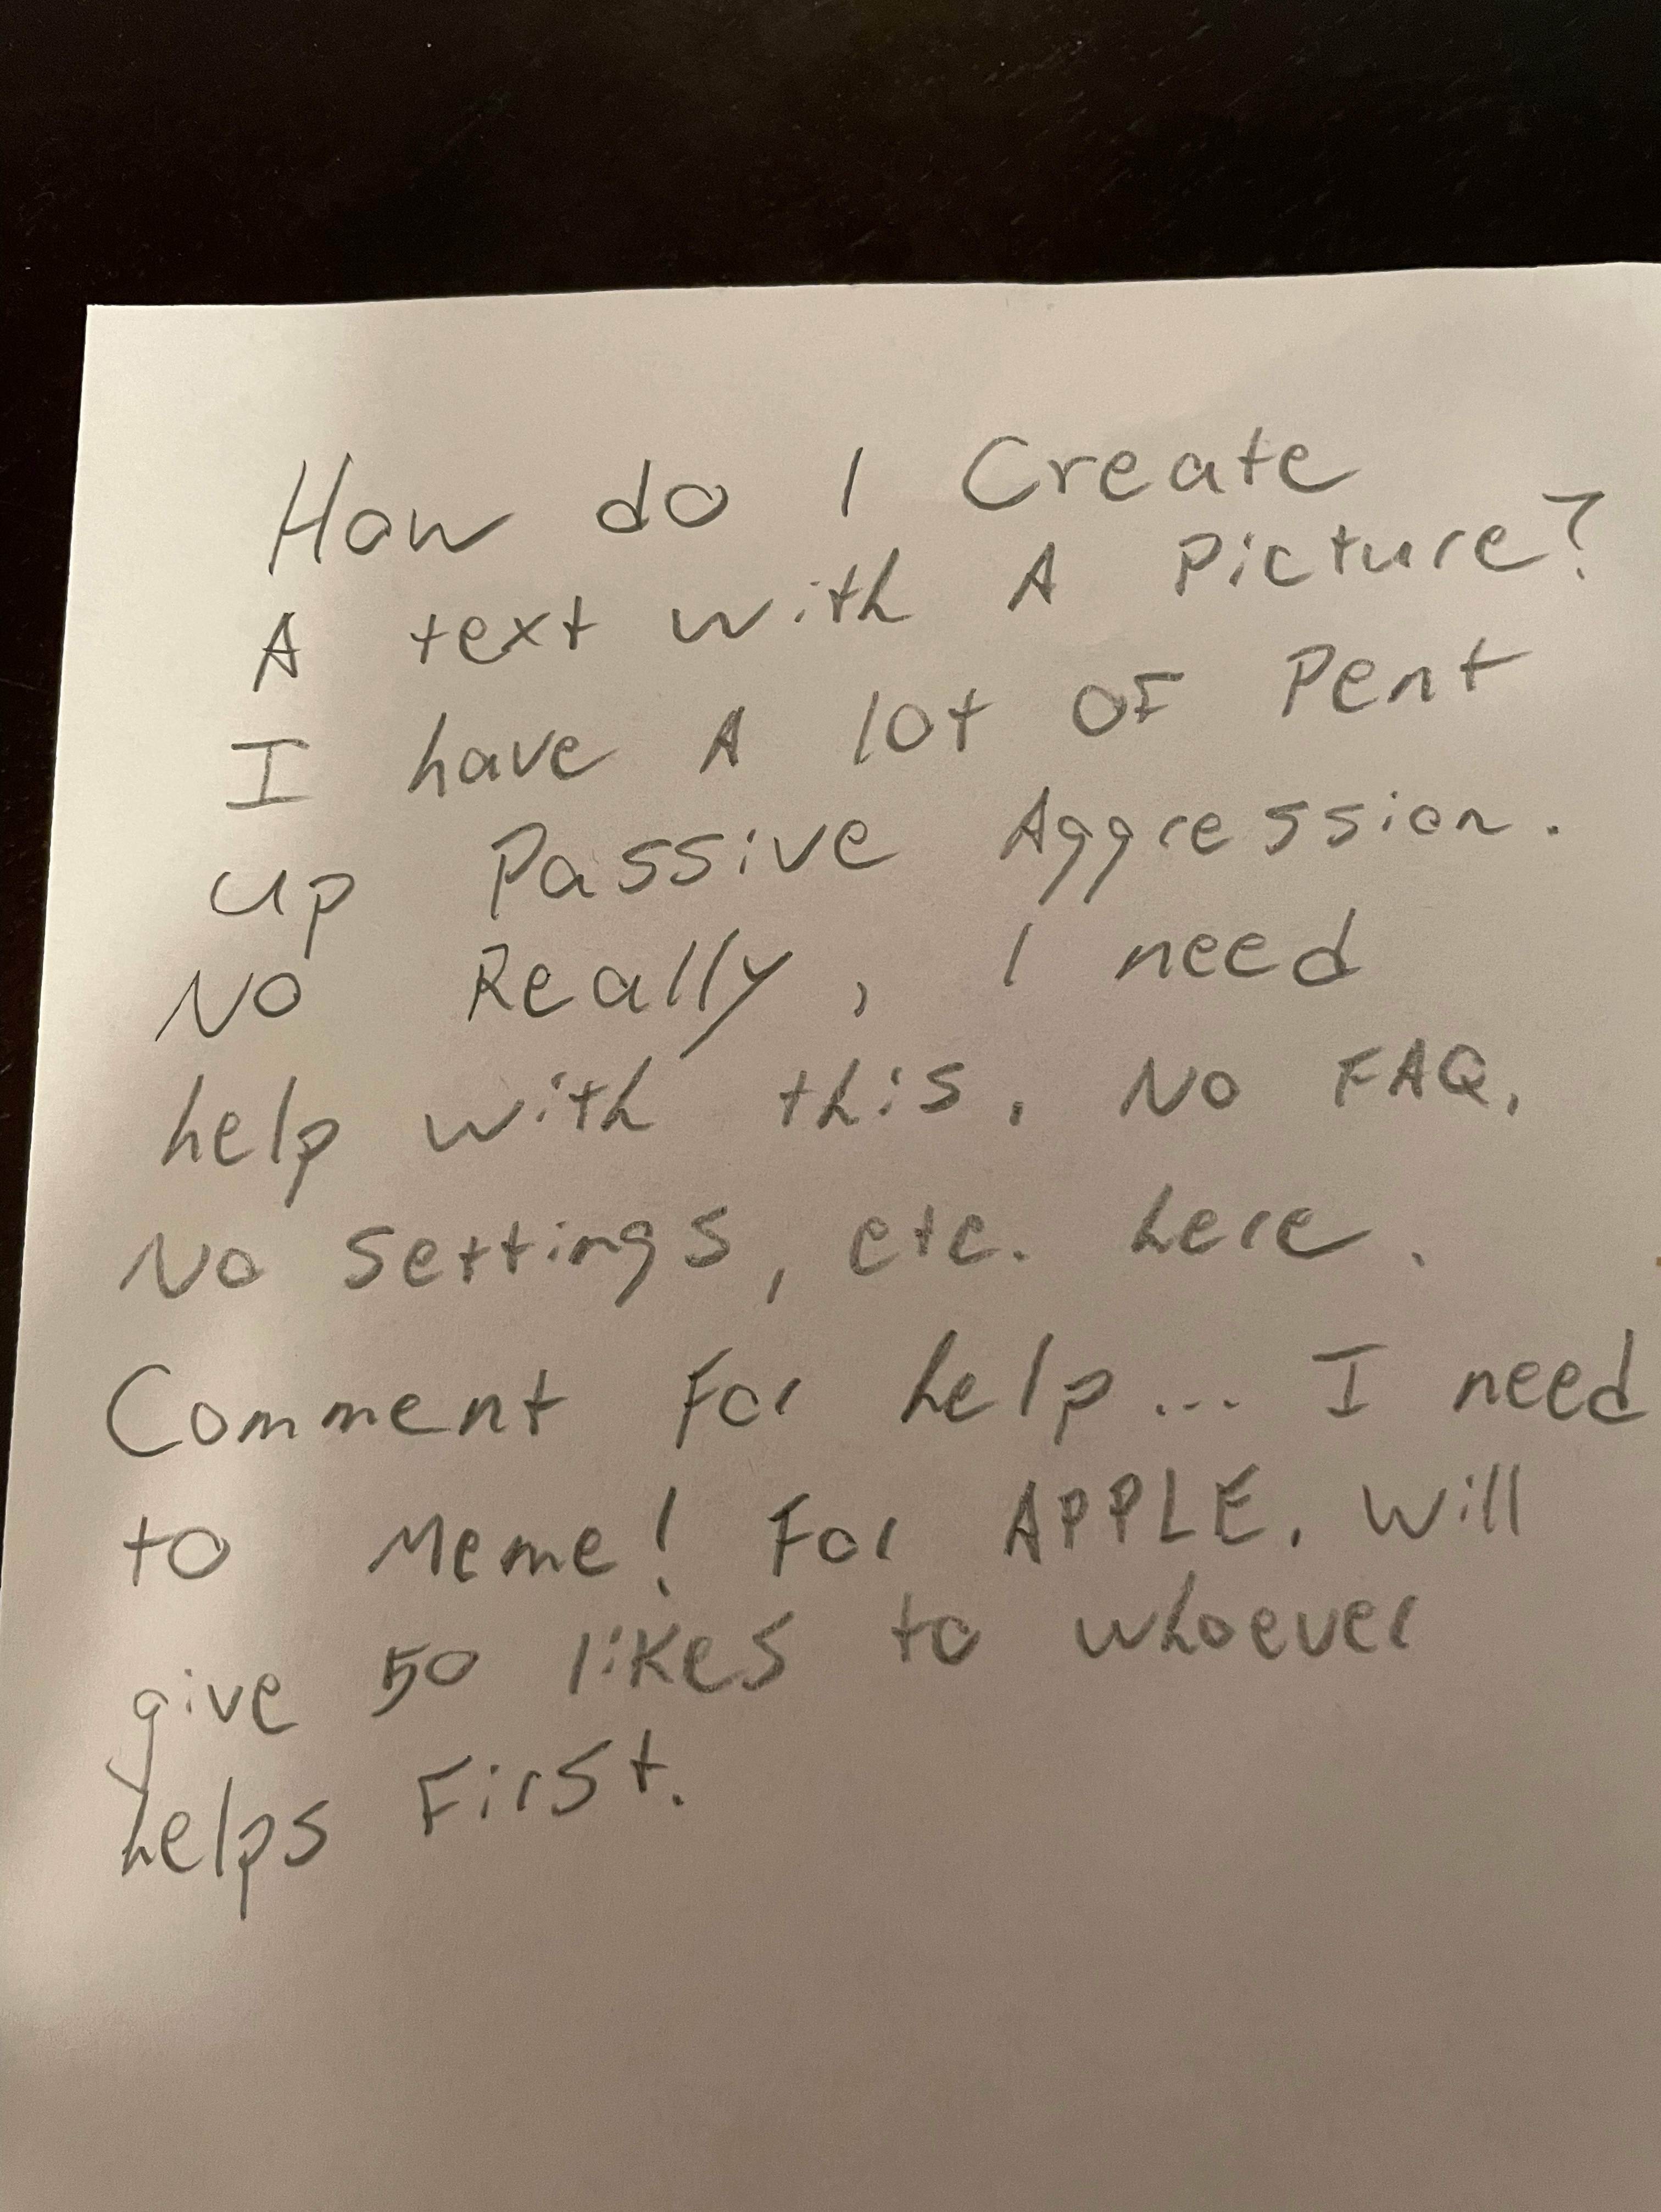 How do I Create
A text with A Picture?
I have A lot OF Pent
up Passive Aggression.
No Really, I need
help with this. No FAQ,
No settings, etc. here.
Comment For help... I need
to Meme! For APPLE. Will
give 50 likes to whoever
helps First.